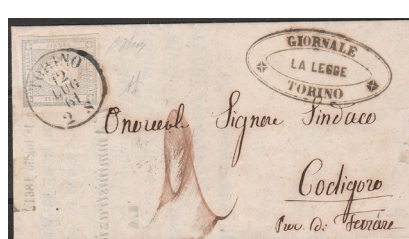 TORINO
12
LUG
61
2 S
GIORNALE
LA LEGGE
TORINO
Onorevole Signore Sindaco
Codigoro
Prov. di Ferrara